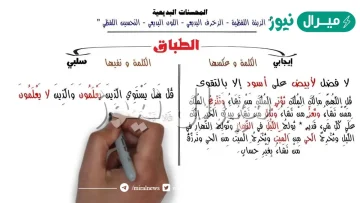 المحسنات البديعية
ميرال نيوز
الزينة اللفظية - الزخرف البديعي - اللون البديعي - التحسين اللفظي "
الطباق
إيجابي
سلبي
الكلمة و عكسها
الكلمة و نفيها
لا فضل لأبيض على أسود إلا بالتقوى
قل هل يستوي الذين يعلمون والذين لا يعلمون
قُلِ اللَّهُمَّ مَالِكَ الْمُلْكِ تُؤْتِي الْمُلْكَ مَن تَشَاءُ وَتَنزِعُ الْمُلْكَ
مِمَّن تَشَاءُ وَتُعِزُّ مَن تَشَاءُ وَتُذِلُّ مَن تَشَاءُ بِيَدِكَ الْخَيْرُ إِنَّكَ
عَلَىٰ كُلِّ شَيْءٍ قَدِير " تُولِجُ اللَّيْلَ فِي النَّهَارِ وَتُولِجُ النَّهَارَ فِي
اللَّيْلِ وَتُخْرِجُ الْحَيَّ مِنَ الْمَيِّتِ وَتُخْرِجُ الْمَيِّتَ مِنَ الْحَيِّ وَتَرْزُقُ
مَن تَشَاءُ بِغَيْرِ حِسَابٍ
/miralnews